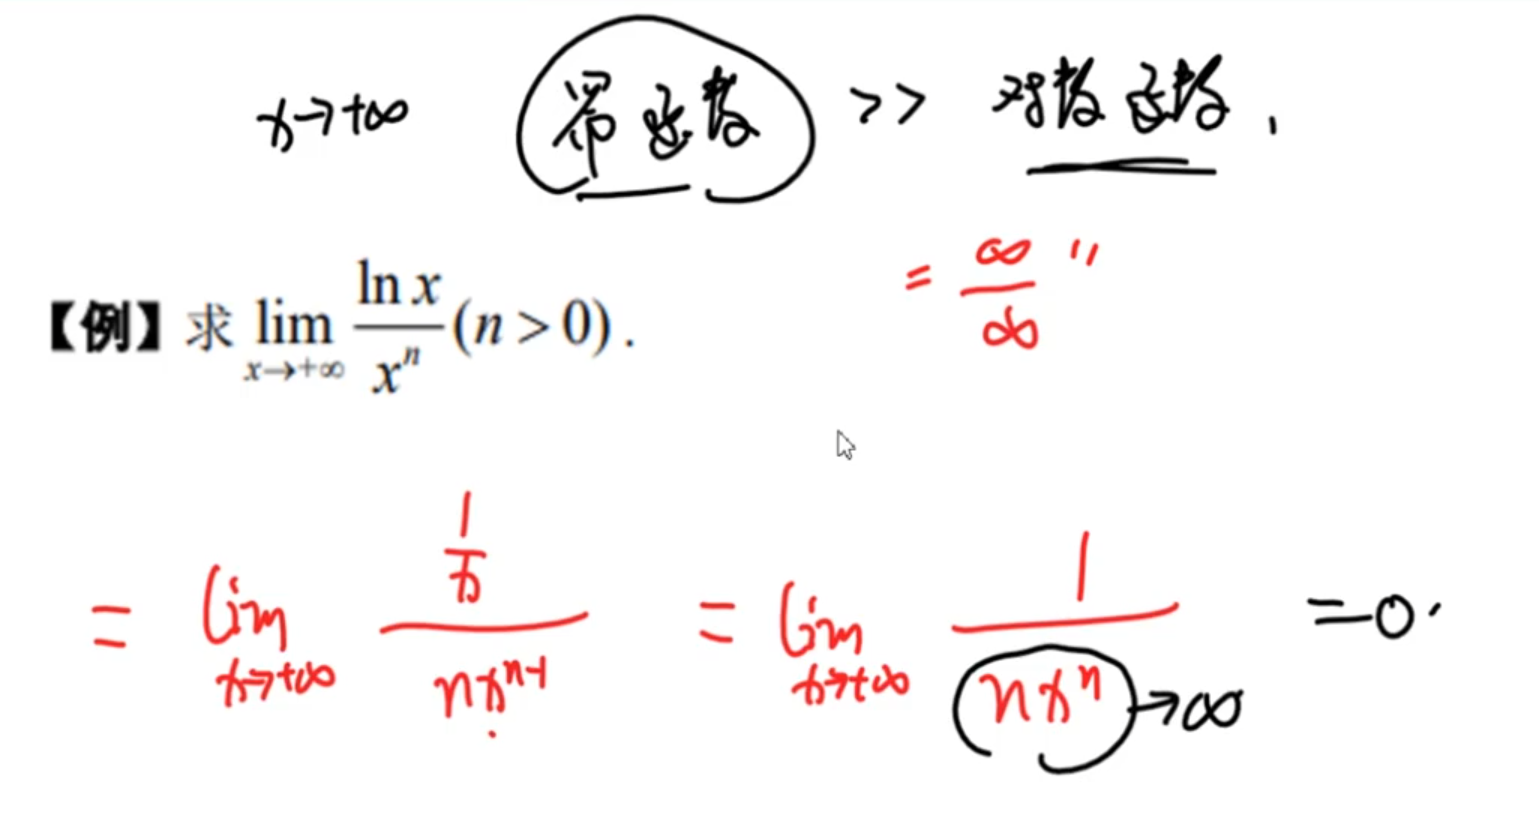 x→+∞ 幂函数 >> 对数函数,
= ∞/∞ "
【例】求 lim_{x→+∞} ln x / x^n (n > 0) .
= lim_{x→+∞} (1/x) / (n x^{n-1}) = lim_{x→+∞} 1 / (n x^n) → ∞ = 0.